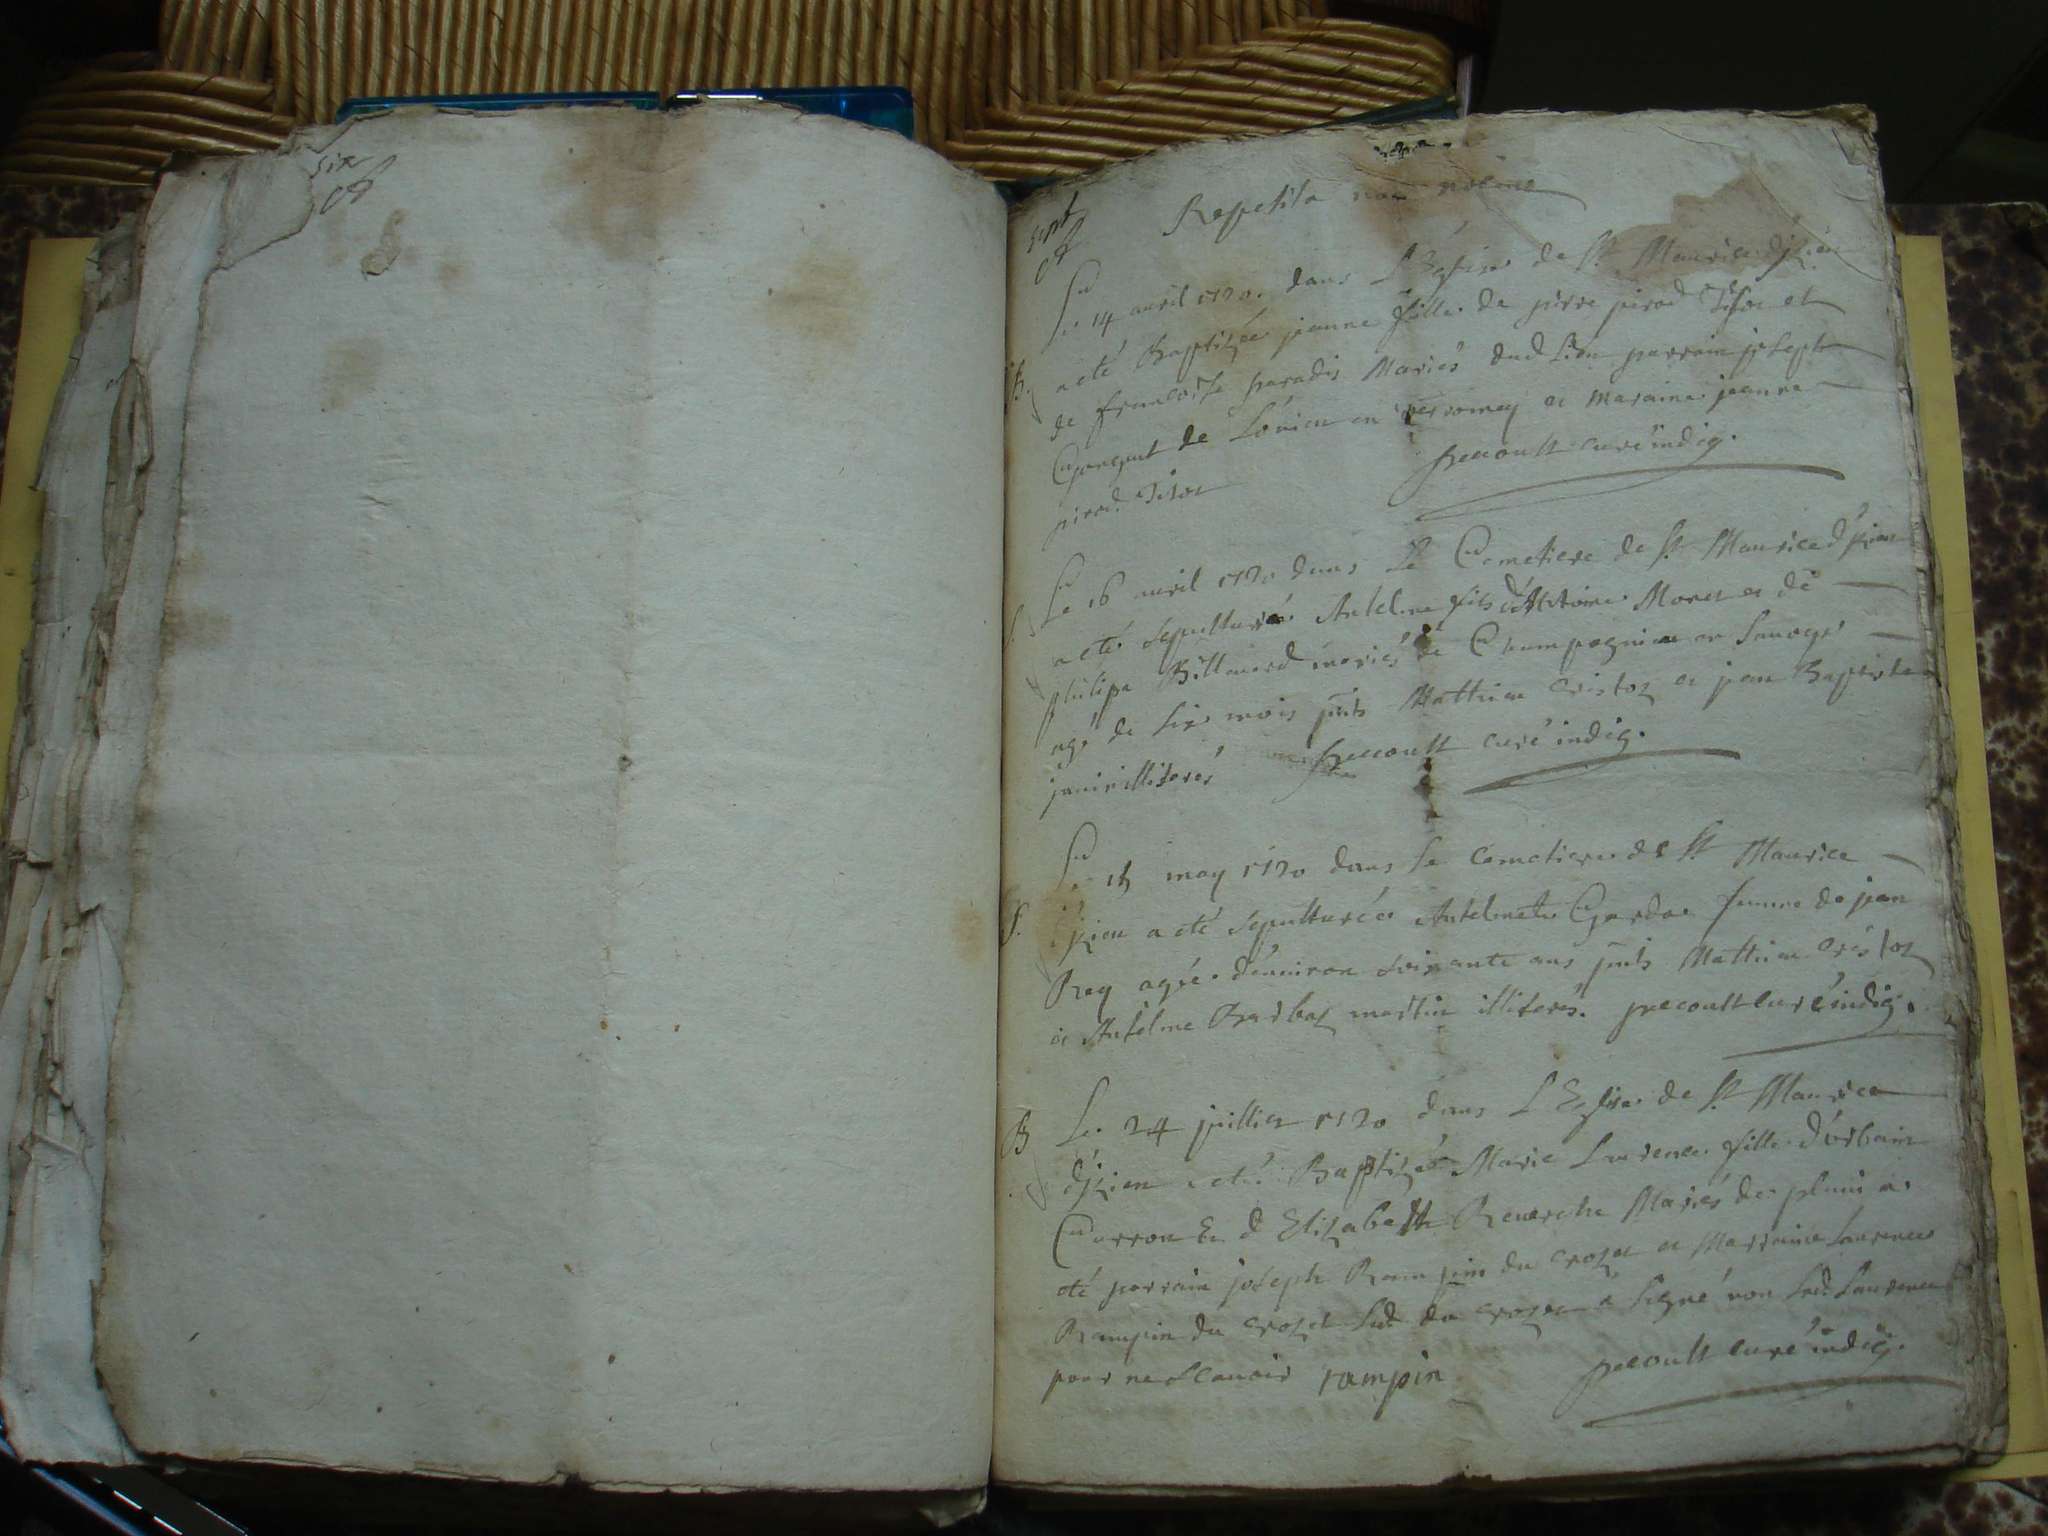 six
sept
Repetita
Le 14 avril 1720 dans L'Eglise de St Maurice d'Izieu
a eté Baptizée jeanne fille de pierre pirod Tisor et
de francoise paradis Mariés dud Lieu parrain joseph
de Lovieu en verromey et maraine jeanne
pirod Tisor precoult curé indig.
Le 16 avril 1720 dans Le Cemetiere de St Maurice d'Izieu
a eté sepulturé Antelme fils d'Antoine Moret et de
philipa Billamord mariés de Champagnieu en Savoye
agé de six mois pnts Matthieu cristoz et jean Baptiste
janin illiterés precoult curé indig.
S. Le 15 may 1720 dans Le cemetiere de St Maurice
izieu a eté sepulturée Antelmette femme de jean
Rey agée d'environ soixante ans pnts Matthieu Cristoz
et Antelme Barbaz martin illiterés. precoult curé indig.
B Le 24 juillet 1720 dans L'Eglise de St Maurice
d'izieu a eté Baptizée Marie Laurence fille d'urbain
Carron Et d'Elizabeth Reverche Mariés de pluni a
eté parrain joseph Rampin du crozet et Marraine Laurence
Rampin du crozet Led. du crozet a signé non Lad. Laurence
pour ne scavoir rampin precoult curé indig.